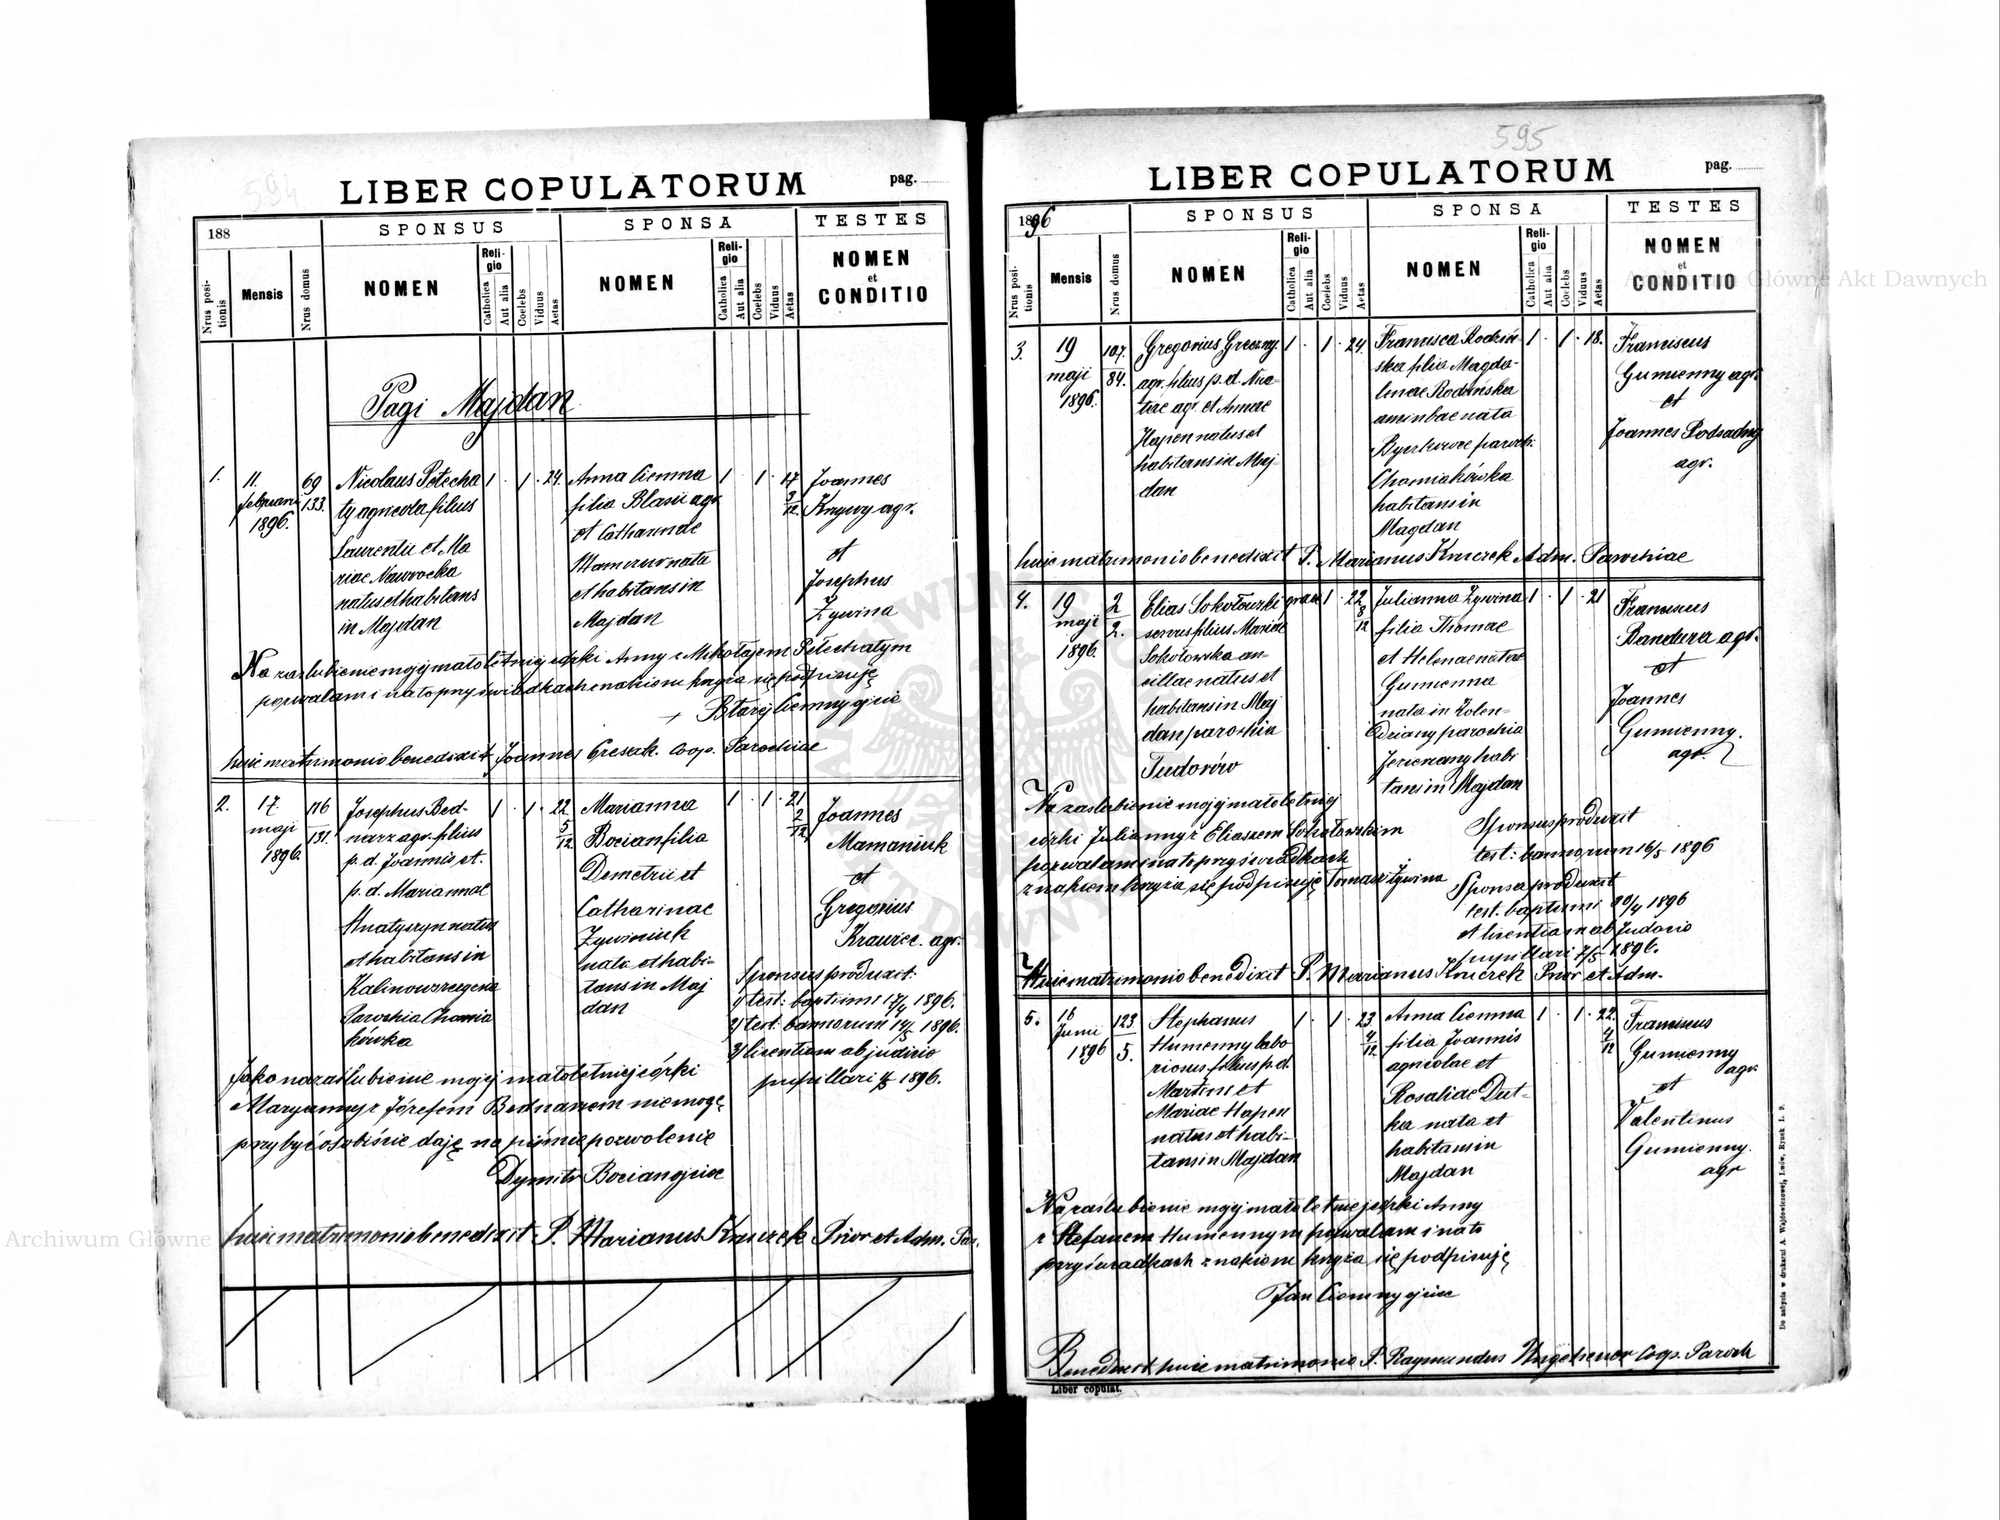 594
LIBER COPULATORUM
pag.
188
SPONSUS
SPONSA
TESTES
Nrus positionis
Mensis
Nrus domus
NOMEN
Religio
Catholica
Aut alia
Coelebs
Viduus
Aetas
NOMEN
Religio
Catholica
Aut alia
Coelebs
Viduus
Aetas
NOMEN
et
CONDITIO
Pagi Majdan
1.
11.
februarii
1896.
69
133.
Nicolaus Petecha
ty agricola filius
Laurentii et Ma
riae Nawrocka
natus et habitans
in Majdan
1 · 1 · 24.
Anna Ciemna
filia Blasii agr.
et Catharinae
nata
et habitans in
Majdan
1 · 1 · 17 3/12
Joannes
Krzywy agr.
et
Josephus
Żywina
Na zaslubienie mojej małoletniej córki Anny z Mikołajem Petechatym
pozwalam i na to przy świadkach znakiem krzyża się podpisuję
+ Błażej Ciemny ojciec
huic matrimonio benedixit Joannes Cresak. Coop. Parochiae
2.
17.
maji
1896.
116
131.
Josephus Bed-
narz agr. filius
p. d. Joannis et.
p. d. Mariannae
Hnatyszyn natus
et habitans in
Kalinowszczyzna
Parochia Chomia
kówka
1 · 1 · 22 5/12
Marianna
Bocian filia
Demetrii et
Catharinae
Żywiniuk
nata et habi-
tans in Maj
dan
1 · 1 · 21 2/12
Joannes
Mamaniuk
et
Gregorius
Krawiec. agr.
Sponsus produxit:
1/ test: baptismi 17/4 1896.
2/ test: bannorum 17/5 1896.
3/ licentiam ab judicio
pupillari 1896.
Jako na zaślubienie mojej małoletniej córki
Maryanny z Józefem Bednarzem nie mogę
przybyć osobiście daję na piśmie pozwolenie
Dymitr Bocian ojciec
huic matrimonio benedixit P. Marianus Knieżek Prior et Adm. Par.
595
LIBER COPULATORUM
pag.
1896
SPONSUS
SPONSA
TESTES
Nrus positionis
Mensis
Nrus domus
NOMEN
Religio
Catholica
Aut alia
Coelebs
Viduus
Aetas
NOMEN
Religio
Catholica
Aut alia
Coelebs
Viduus
Aetas
NOMEN
et
CONDITIO
3.
19
maji
1896.
107.
84.
Gregorius Greczny.
agr. filius p. d. Nice-
tae agr. et Annae
Hapen natus et
habitans in Maj-
dan
1 · 1 · 24.
Francisca Rodziń-
ska filia Magda-
lenae Rodzińska
nata
Byczkowce paroch:
Chomiakówka
habitans in
Magdan
1 · 1 · 18.
Franciscus
Gumienny agr.
et
Joannes Podsadny
agr.
huic matrimonio benedixit P. Marianus Knieżek Adm. Parochiae
4.
19
maji
1896.
2
2.
Elias Sokołowski
servus filius Mariae
Sokołowska an-
cillae natus et
habitans in Maj
dan parochia
Tudorów
graec 1 · 22 8/12
Julianna Żywina
filia Thomae
et Helenae natae
Gumienna
nata in Kolen-
dziany parochia
Jezierzany habi
tans in Majdan
1 · 1 · 21
Franciscus
Bandura agr.
et
Joannes
Gumienny.
agr.
Na zaslubienie mojej małoletniej
córki Julianny z Eliaszem Sokołowskim
pozwalam i na to przy świadkach
znakiem krzyża się podpisuję Tomasz Żywina
Sponsus produxit
test: bannorum 16/5 1896
Sponsa produxit
test. baptismi 20/4 1896
et licentiam ab Judicio
pupillari 7/5 1896.
Huic matrimonio benedixit P. Marianus Knieżek Prior et Adm.
5.
16
Junii
1896
123
5.
Stephanus
Humenny labo
riosus filius p. d.
Martini et
Mariae Hapen
natus et habi-
tans in Majdan
1 · 1 · 23 4/12
Anna Ciemna
filia Joannis
agricolae et
Rosaliae Dut-
ka nata et
habitans in
Majdan
1 · 1 · 22. 4/12
Franciscus
Gumienny
agr.
et
Valentinus
Gumienny.
agr
Na zaślubienie mojej małoletniej córki Anny
z Stefanem Humennym pozwalam i na to
przy świadkach znakiem krzyża się podpisuję
Jan Ciemny ojciec
Benedixit huic matrimonio P. Raymundus Ungeheuer Coop. Paroch
Liber copulat.
Do nabycia w drukarni A. Wajdowiczowej, Lwów, Rynek l. 9.
Archiwum Główne Akt Dawnych
Archiwum Główne
ARCHIWUM
DAWNYCH